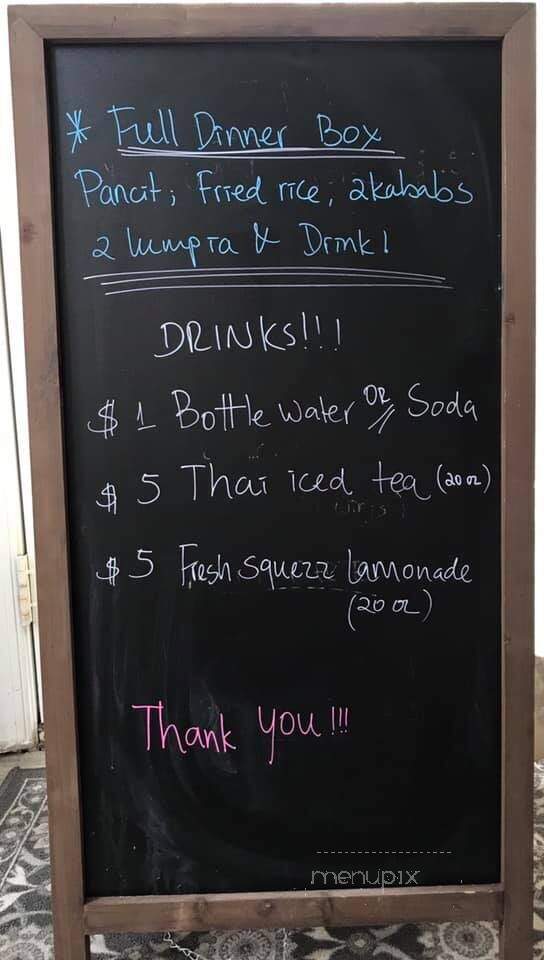 * Full Dinner Box
Pancit; Fried rice, 2 kababs
2 lumpia & Drink!
DRINKS!!!
$ 1 Bottle water OR Soda
$ 5 Thai iced tea (20 oz)
$ 5 Fresh squezz lamonade
(20 oz)
Thank you!!!
menupix